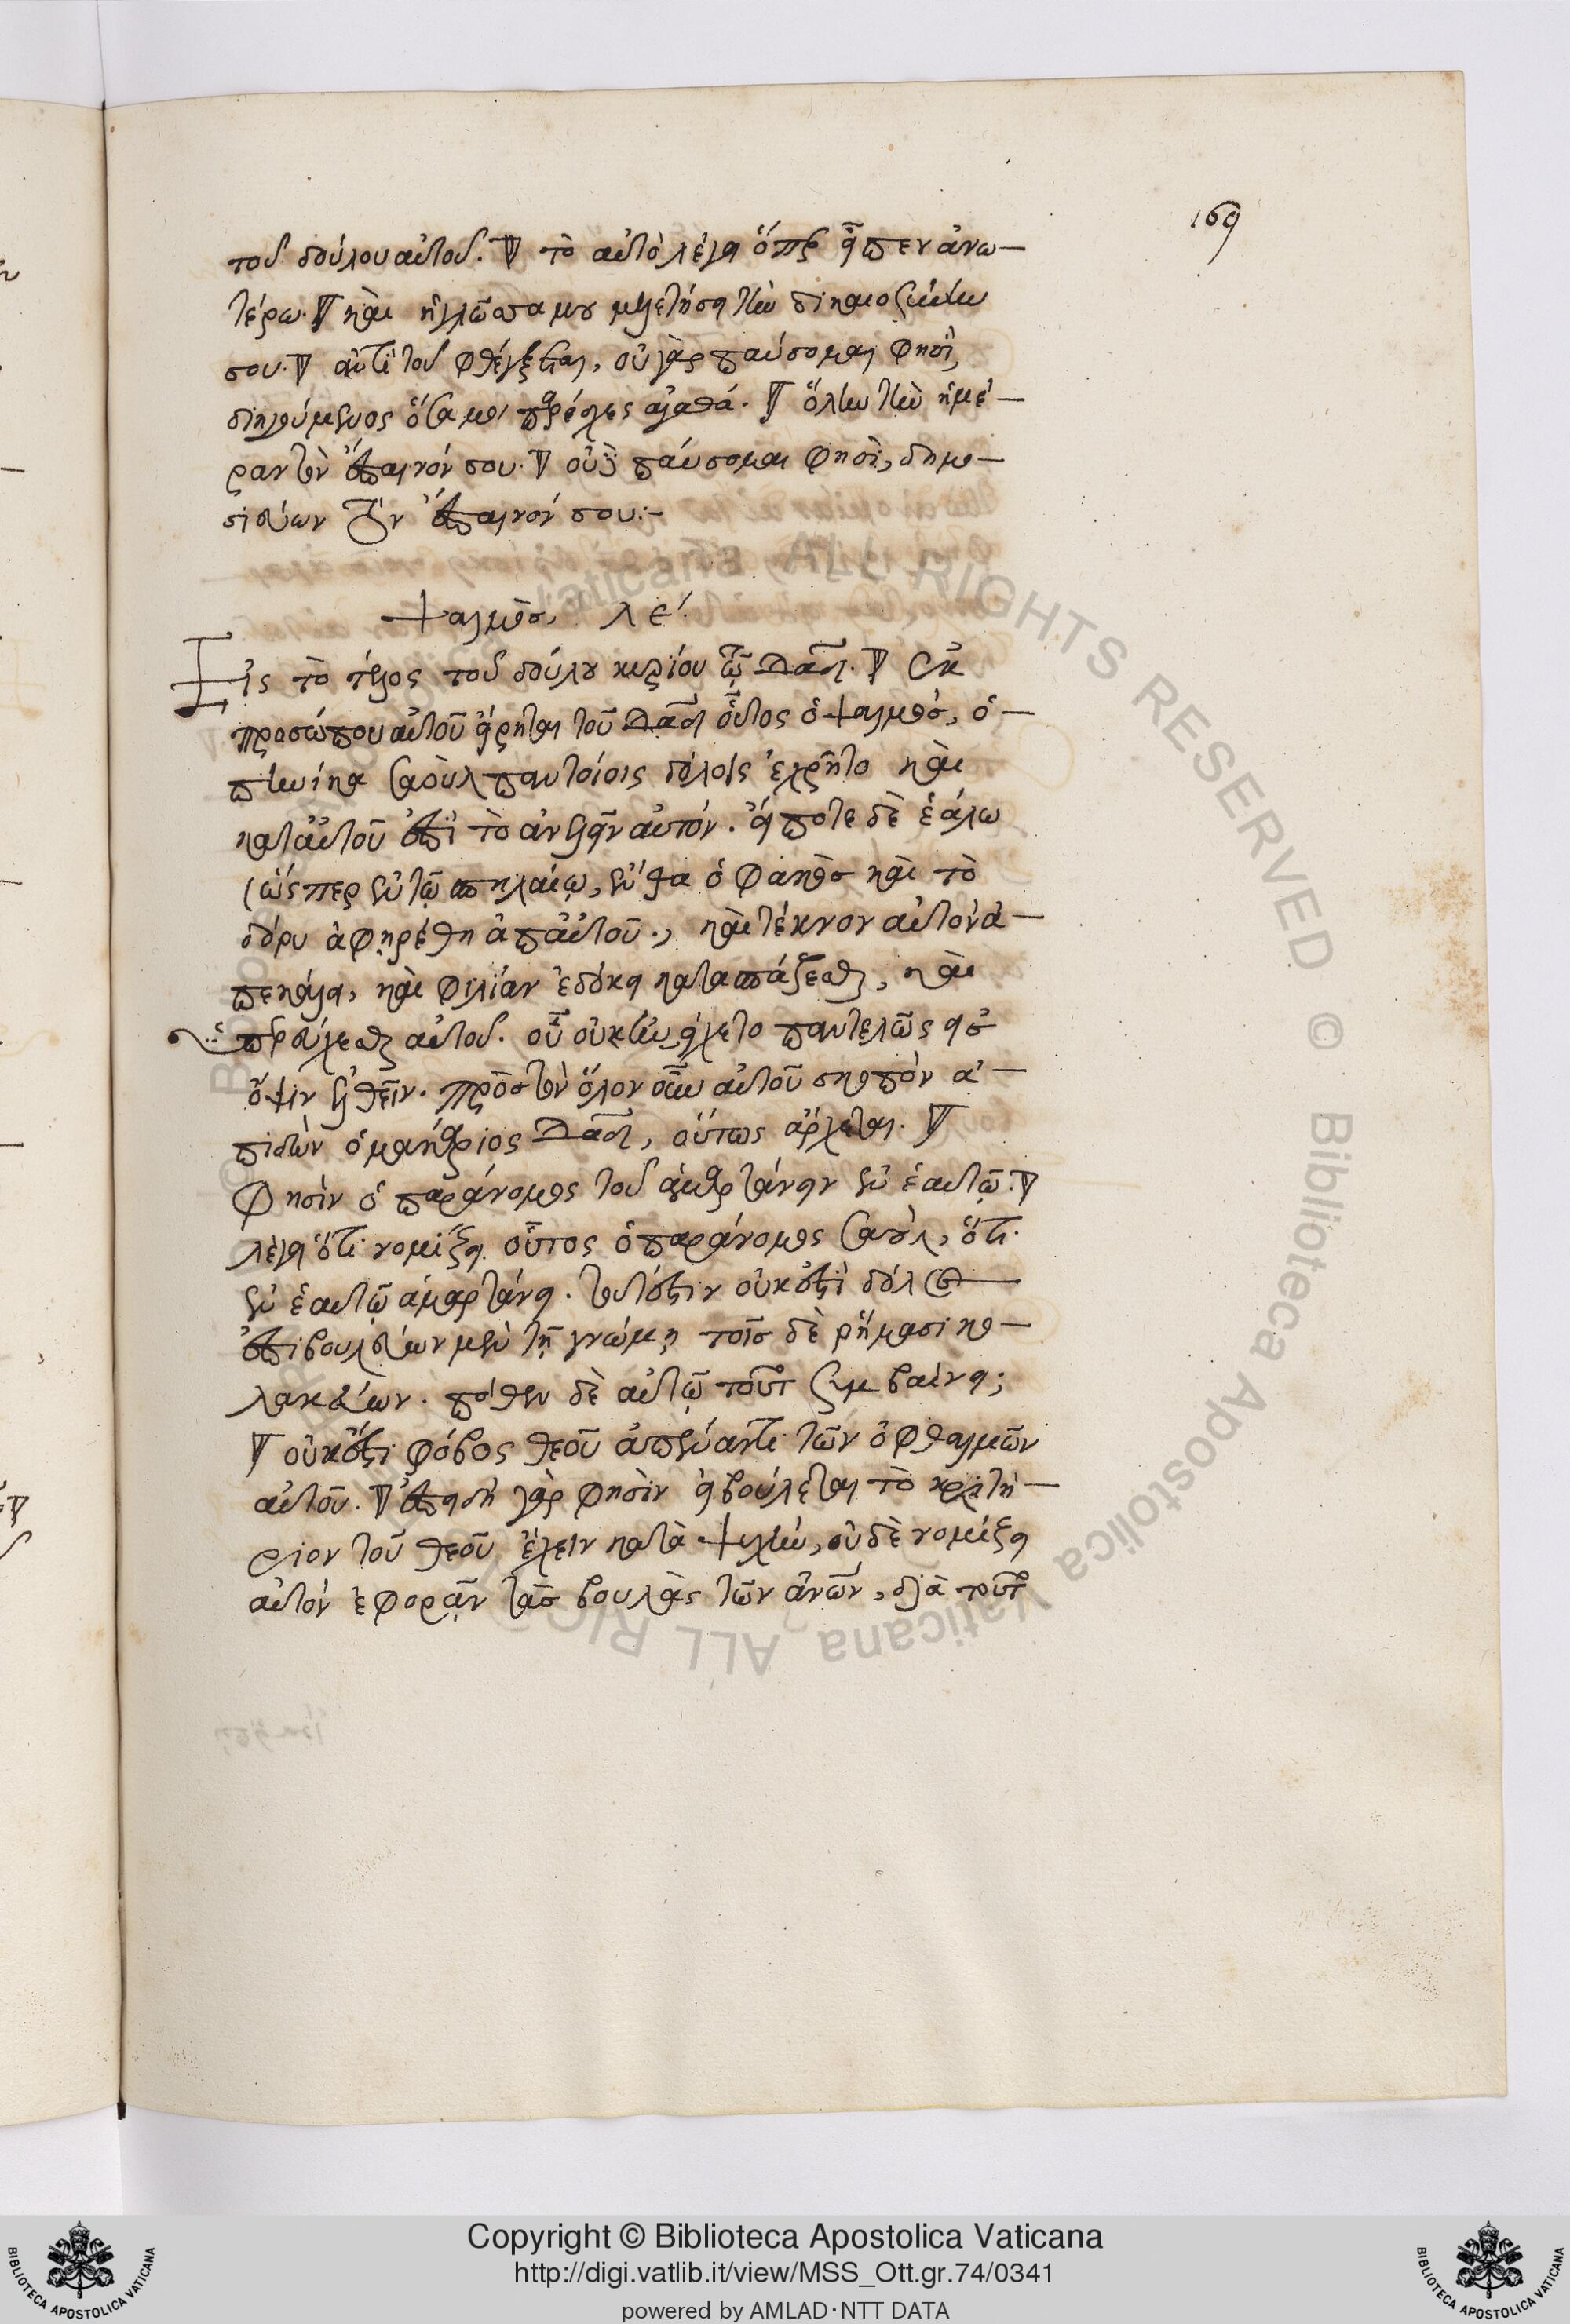 169
τοῦ δούλου αὐτοῦ. τὸ αὐτὸ λέγει ὅπερ εἶπεν ἀνω-
τέρω. καὶ ἡ γλῶσσα μου μελετήσει τὴν δικαιοσύνην
σου. ἀντὶ τοῦ φθέγξεται, οὐ γὰρ παύσομαι φησὶ,
διηγούμενος ὅσα μοι παρέσχες ἀγαθά. ὅλην τὴν ἡμέ-
ραν τὸν ἔπαινόν σου. οὐδὲ παύσομαι φησὶ, δημο-
σιεύων τὸν ἔπαινόν σου:-
Ψαλμὸς, λε΄.
Εἰς τὸ τέλος τοῦ δούλου κυρίου τῷ Δαδ. Ἐκ
προσώπου αὐτοῦ εἴρηται τοῦ Δαδ οὗτος ὁ ψαλμὸς, ὁ-
πηνίκα Σαοὺλ παντοίοις δόλοις ἐχρῆτο καὶ
κατ αὐτοῦ ἐπὶ τὸ ἀνελεῖν αὐτόν. εἴποτε δὲ ἑάλω
(ὥσπερ ἐν τῷ σπηλαίῳ, ἔνθα ὁ φακὸς καὶ τὸ
δόρυ ἀφῃρέθη ἀπ αὐτοῦ., καὶ τέκνον αὐτὸν ἀ-
πεκάλει, καὶ φιλίαν ἐδόκει κατασπάζεσθαι, καὶ
ὑπερεύχεσθαι αὐτοῦ. οὗ οὐκ ἠνείχετο παντελῶς εἰς
ὄψιν ἐλθεῖν. πρὸς τὸν ὅλον οὖν αὐτοῦ σκοπὸν ἀ-
πιδὼν ὁ μακάριος Δαδ, οὕτως ἄρχεται.
Φησὶν ὁ παράνομος τοῦ ἁμαρτάνειν ἐν ἑαυτῷ.
λέγει ὅτι νομίζει οὗτος ὁ παράνομος Σαοὺλ, ὅτι
ἐν ἑαυτῷ ἁμαρτάνει. τουτέστιν οὐκ ἐπὶ
ἐπιβουλεύων μὲν τῇ γνώμῃ τοῖς δὲ ῥήμασι κο-
λακεύων. πόθεν δὲ αὐτῷ τοῦτο συμβαίνει;
οὐκ ἔστι φόβος θεοῦ ἀπέναντι τῶν ὀφθαλμῶν
αὐτοῦ. ἐπειδὴ γὰρ φησὶν εἰ βούλεται τὸ κριτή-
ριον τοῦ θεοῦ ἔχειν κατὰ ψυχὴν, οὐδὲ νομίζει
αὐτὸν ἐφορᾷν τὰς βουλὰς τῶν ἀνων, διὰ τοῦτο
Copyright © Biblioteca Apostolica Vaticana
http://digi.vatlib.it/view/MSS_Ott.gr.74/0341
powered by AMLAD·NTT DATA